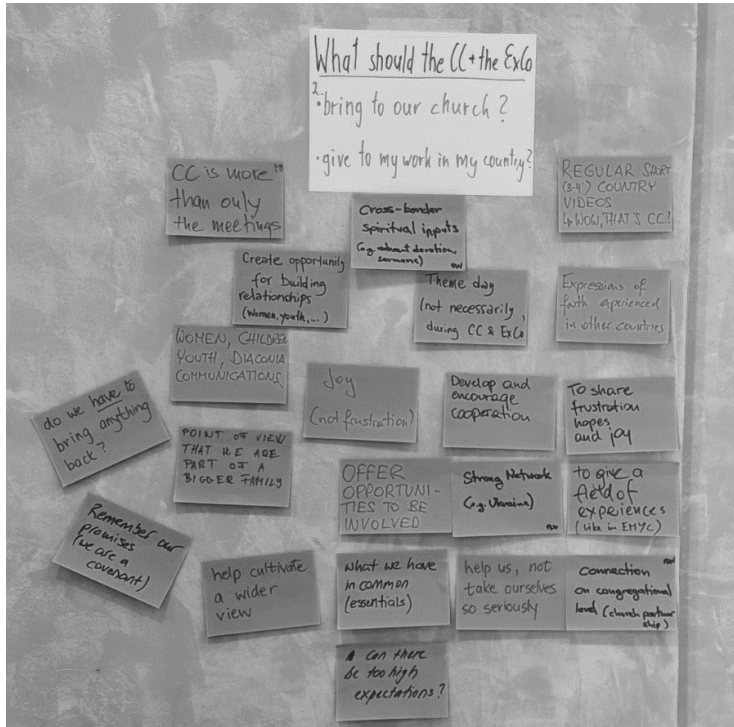 What should the CC + the ExCo
2.
• bring to our church?
• give to my work in my country?
CC is more
than only
the meetings
Cross-border
spiritual inputs
(e.g. advent devotion,
sermons)
REGULAR SHORT
(3-4') COUNTRY
VIDEOS
↳ WOW, THAT'S CC!
Create opportunity
for building
relationships
(Women, youth, ...)
Theme day
(not necessarily
during CC & ExCo)
Expressions of
faith experienced
in other countries
WOMEN, CHILDREN
YOUTH, DIACONIA
COMMUNICATIONS
Joy
(not frustration)
Develop and
encourage
cooperation
To share
frustration
hopes
and joy
do we have to
bring anything
back?
POINT OF VIEW
THAT WE ARE
PART OF A
BIGGER FAMILY
OFFER
OPPORTUNI-
TIES TO BE
INVOLVED
Strong Network
(e.g. Ukraine)
to give a
field of
experiences
(like in EMYC)
Remember our
promises
(we are a
covenant)
help cultivate
a wider
view
what we have
in common
(essentials)
help us, not
take ourselves
so seriously
Connection
on congregational
level (church partner
ship)
Can there
be too high
expectations?